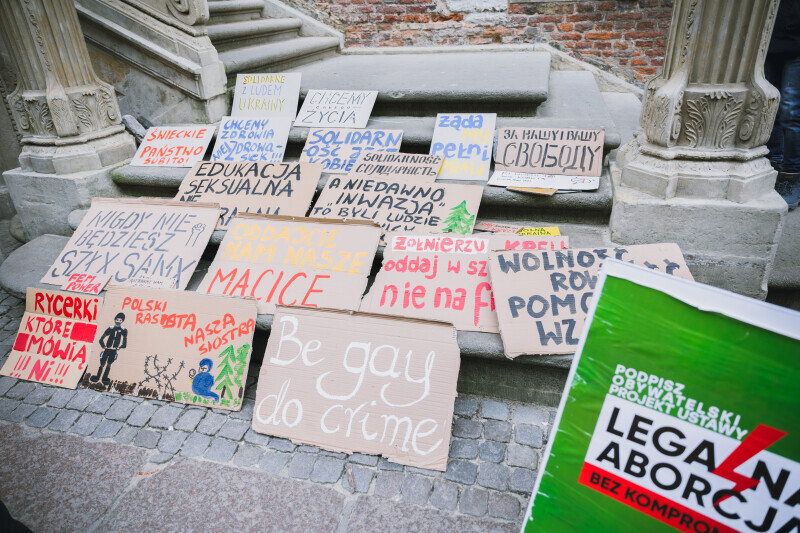 SOLIDARNIE
Z LUDEM
UKRAINY
CHCEMY
ŻYCIA
ŚWIECKIE
PAŃSTWO
SUBITO!
CHCEMY ZDROWIA
SOLIDARN
OŚĆ Z
KOBIE
żąda
pełni
ЗА НАШУ І ВАШУ
СВОБОДУ
EDUKACJA
SEKSUALNA
SOLIDARNOŚĆ
СОЛІДАРНІСТЬ
A NIEDAWNO
"INWAZJA"
TO BYLI LUDZIE
NIGDY NIE
BĘDZIESZ
SZŁX SAMX
FEM
POWER
NAM NASZE
MACICE
ŻOŁNIERZU
oddaj w sz
nie na f
WOLNOŚ
RÓW
POMO
WZ
RYCERKI
KTÓRE
MÓWIĄ
!!! NI!!!
POLSKI
RASISTA
NASZA
SIOSTRA
Be gay
do crime
PODPISZ
OBYWATELSKI
PROJEKT USTAWY
LEGALNA
ABORCJA
BEZ KOMPROM